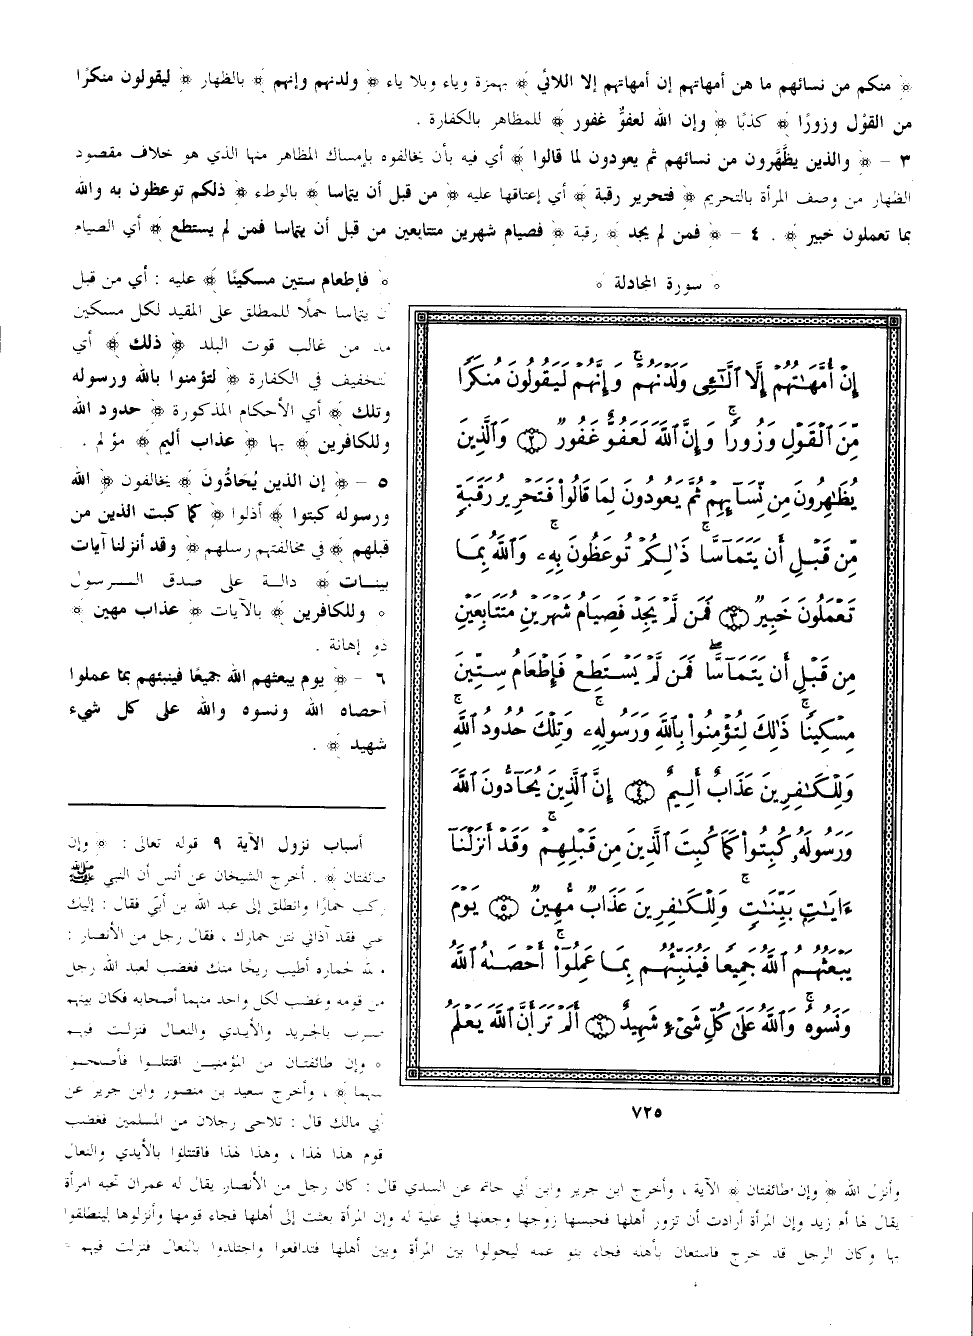 ﴿ منكم من نسائهم ما هن أمهاتهم إن أمهاتهم إلا اللائي ﴾ بهمزة وياء وبلا ياء ﴿ ولدنهم وإنهم ﴾ بالظهار ﴿ ليقولون منكرًا
من القول وزورًا ﴾ كذبًا ﴿ وإن الله لعفوٌّ غفور ﴾ للمظاهر بالكفارة .
٣ - ﴿ والذين يظَّهَّرون من نسائهم ثم يعودون لما قالوا ﴾ أي فيه بأن يخالفوه بإمساك المظاهر منها الذي هو خلاف مقصود
الظهار من وصف المرأة بالتحريم ﴿ فتحرير رقبة ﴾ أي إعتاقها عليه ﴿ من قبل أن يتماسا ﴾ بالوطء ﴿ ذلكم توعظون به والله
بما تعملون خبير ﴾ . ٤ - ﴿ فمن لم يجد ﴾ رقبة ﴿ فصيام شهرين متتابعين من قبل أن يتماسا فمن لم يستطع ﴾ أي الصيام
﴿ فإطعام ستين مسكينًا ﴾ عليه : أي من قبل
أن يتماسا حملًا للمطلق على المقيد لكل مسكين
مد من غالب قوت البلد ﴿ ذلك ﴾ أي
التخفيف في الكفارة ﴿ لتؤمنوا بالله ورسوله
وتلك ﴾ أي الأحكام المذكورة ﴿ حدود الله
وللكافرين ﴾ بها ﴿ عذاب أليم ﴾ مؤلم .
٥ - ﴿ إن الذين يُحَادُّونَ ﴾ يخالفون ﴿ الله
ورسوله كبتوا ﴾ أذلوا ﴿ كما كبت الذين من
قبلهم ﴾ في مخالفتهم رسلهم ﴿ وقد أنزلنا آيات
بينات ﴾ دالة على صدق الرسول
﴿ وللكافرين ﴾ بالآيات ﴿ عذاب مهين ﴾
ذو إهانة .
٦ - ﴿ يوم يبعثهم الله جميعًا فينبئهم بما عملوا
أحصاه الله ونسوه والله على كل شيء
شهيد ﴾ .
﴿ سورة المجادلة ﴾
إِنْ أُمَّهَٰتُهُمْ إِلَّا ٱلَّٰٓـِٔى وَلَدْنَهُمْ ۚ وَإِنَّهُمْ لَيَقُولُونَ مُنكَرًا
مِّنَ ٱلْقَوْلِ وَزُورًا ۚ وَإِنَّ ٱللَّهَ لَعَفُوٌّ غَفُورٌ ﴿٢﴾ وَٱلَّذِينَ
يُظَٰهِرُونَ مِن نِّسَآئِهِمْ ثُمَّ يَعُودُونَ لِمَا قَالُوا۟ فَتَحْرِيرُ رَقَبَةٍ
مِّن قَبْلِ أَن يَتَمَآسَّا ۚ ذَٰلِكُمْ تُوعَظُونَ بِهِۦ ۚ وَٱللَّهُ بِمَا
تَعْمَلُونَ خَبِيرٌ ﴿٣﴾ فَمَن لَّمْ يَجِدْ فَصِيَامُ شَهْرَيْنِ مُتَتَابِعَيْنِ
مِن قَبْلِ أَن يَتَمَآسَّا ۖ فَمَن لَّمْ يَسْتَطِعْ فَإِطْعَامُ سِتِّينَ
مِسْكِينًا ۚ ذَٰلِكَ لِتُؤْمِنُوا۟ بِٱللَّهِ وَرَسُولِهِۦ ۚ وَتِلْكَ حُدُودُ ٱللَّهِ ۗ
وَلِلْكَٰفِرِينَ عَذَابٌ أَلِيمٌ ﴿٤﴾ إِنَّ ٱلَّذِينَ يُحَآدُّونَ ٱللَّهَ
وَرَسُولَهُۥ كُبِتُوا۟ كَمَا كُبِتَ ٱلَّذِينَ مِن قَبْلِهِمْ ۚ وَقَدْ أَنزَلْنَآ
ءَايَٰتٍۭ بَيِّنَٰتٍ ۚ وَلِلْكَٰفِرِينَ عَذَابٌ مُّهِينٌ ﴿٥﴾ يَوْمَ
يَبْعَثُهُمُ ٱللَّهُ جَمِيعًا فَيُنَبِّئُهُم بِمَا عَمِلُوٓا۟ ۚ أَحْصَىٰهُ ٱللَّهُ
وَنَسُوهُ ۚ وَٱللَّهُ عَلَىٰ كُلِّ شَىْءٍ شَهِيدٌ ﴿٦﴾ أَلَمْ تَرَ أَنَّ ٱللَّهَ يَعْلَمُ
٧٢٥
أسباب نزول الآية ٩ قوله تعالى : ﴿ وإن
طائفتان ﴾ . أخرج الشيخان عن أنس أن النبي ﷺ
ركب حمارًا وانطلق إلى عبد الله بن أبيّ فقال : إليك
عني فقد آذاني نتن حمارك ، فقال رجل من الأنصار :
والله لحماره أطيب ريحًا منك فغضب لعبد الله رجل
من قومه وغضب لكل واحد منهما أصحابه فكان بينهم
ضرب بالجريد والأيدي والنعال فنزلت فيهم
﴿ وإن طائفتان من المؤمنين اقتتلوا فأصلحوا
بينهما ﴾ ، وأخرج سعيد بن منصور وابن جرير عن
أبي مالك قال : تلاحى رجلان من المسلمين فغضب
قوم هذا لهذا ، وهذا لهذا فاقتتلوا بالأيدي والنعال
وأنزل الله ﴿ وإن طائفتان ﴾ الآية ، وأخرج ابن جرير وابن أبي حاتم عن السدي قال : كان رجل من الأنصار يقال له عمران تحته امرأة
يقال لها أم زيد وإن المرأة أرادت أن تزور أهلها فحبسها زوجها وجعلها في علية له وإن المرأة بعثت إلى أهلها فجاء قومها وأنزلوها لينطلقوا
بها وكان الرجل قد خرج فاستعان بأهله فجاء بنو عمه ليحولوا بين المرأة وبين أهلها فتدافعوا واجتلدوا بالنعال فنزلت فيهم =